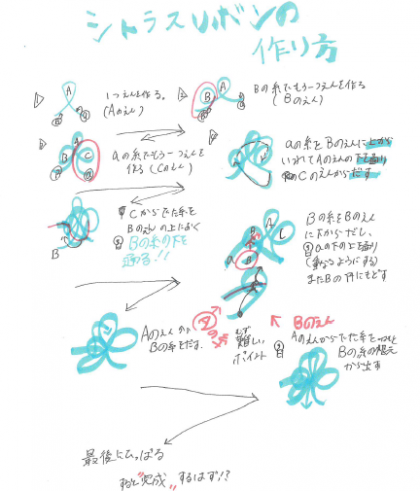 シトラスリボンの
作り方
A
1つえんを作る。
(Aのえん)
B A
Bの糸でもう一つえんを作る
(Bのえん)
A
B C
aの糸でもう一つえんを
作る (Cのえん)
aの糸をBのえんに上から
いれてAのえんの下を通り
Cのえんからだす
B
Cからでた糸を
Bのえんの上におく
② Bの糸の下を
通る!!
A
B
Bの糸をBのえん
に下からだし、
aの下の上を通り
(重なるようにする)
またBの下にもどす
Aのえん
Bの糸をだす。
難しい
ポイント
Bのえん
Aのえんからでた糸を
Bの糸の根元
から出す
最後にひっぱる
すると"完成"するはず!?